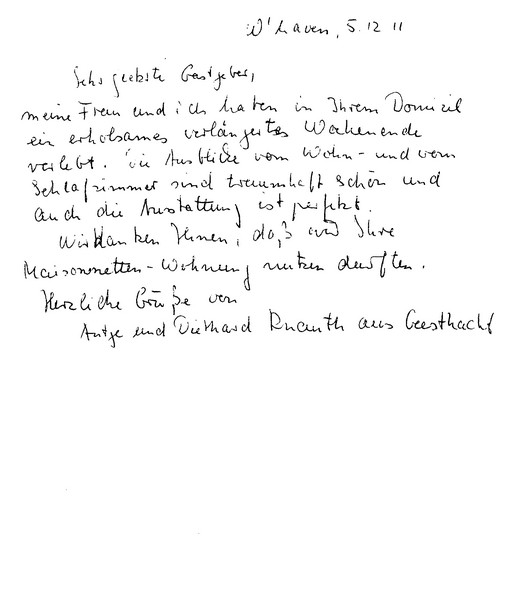 W'haven, 5.12 11
Sehr geehrte Gastgeber,
meine Frau und ich haben in Ihrem Domizil
ein erholsames verlängertes Wochenende
verlebt. Die Ausblicke vom Wohn- und vom
Schlafzimmer sind traumhaft schön und
auch die Ausstattung ist perfekt.
Wir danken Ihnen, daß wir Ihre
Maisonetten-Wohnung nutzen durften.
Herzliche Grüße von
Antje und Diethard Knauth aus Geesthacht